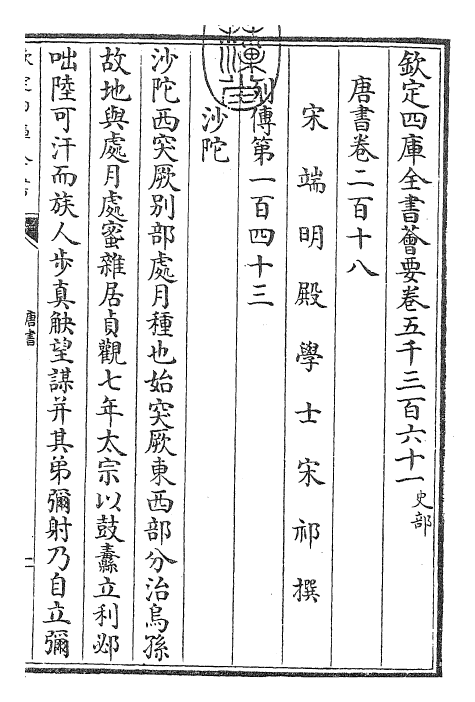 欽定四庫全書薈要卷五千三百六十一史部
唐書卷二百十八
宋端明殿學士宋祁撰
列傳第一百四十三
沙陀
沙陀西突厥別部處月種也始突厥東西部分治烏孫
故地與處月處蜜雜居貞觀七年太宗以鼓纛立利邲
咄陸可汗而族人步真觖望謀并其弟彌射乃自立彌
唐書